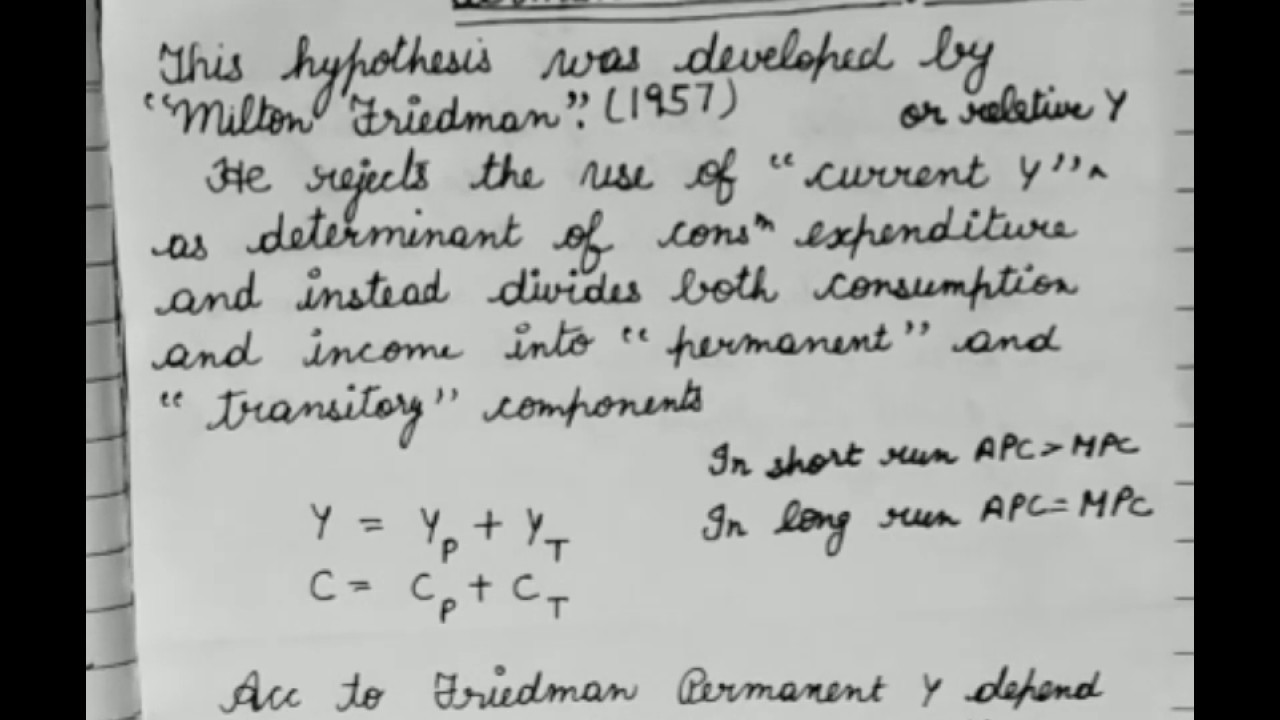 This hypothesis was developed by
"Milton Friedman". (1957)
or reletive Y
He rejects the use of "current Y" ^
as determinant of consⁿ expenditure
and instead divides both consumption
and income into "permanent" and
"transitory" components
In short run APC > MPC
In long run APC = MPC
Y = Y_P + Y_T
C = C_P + C_T
Acc to Friedman Permanent Y depend